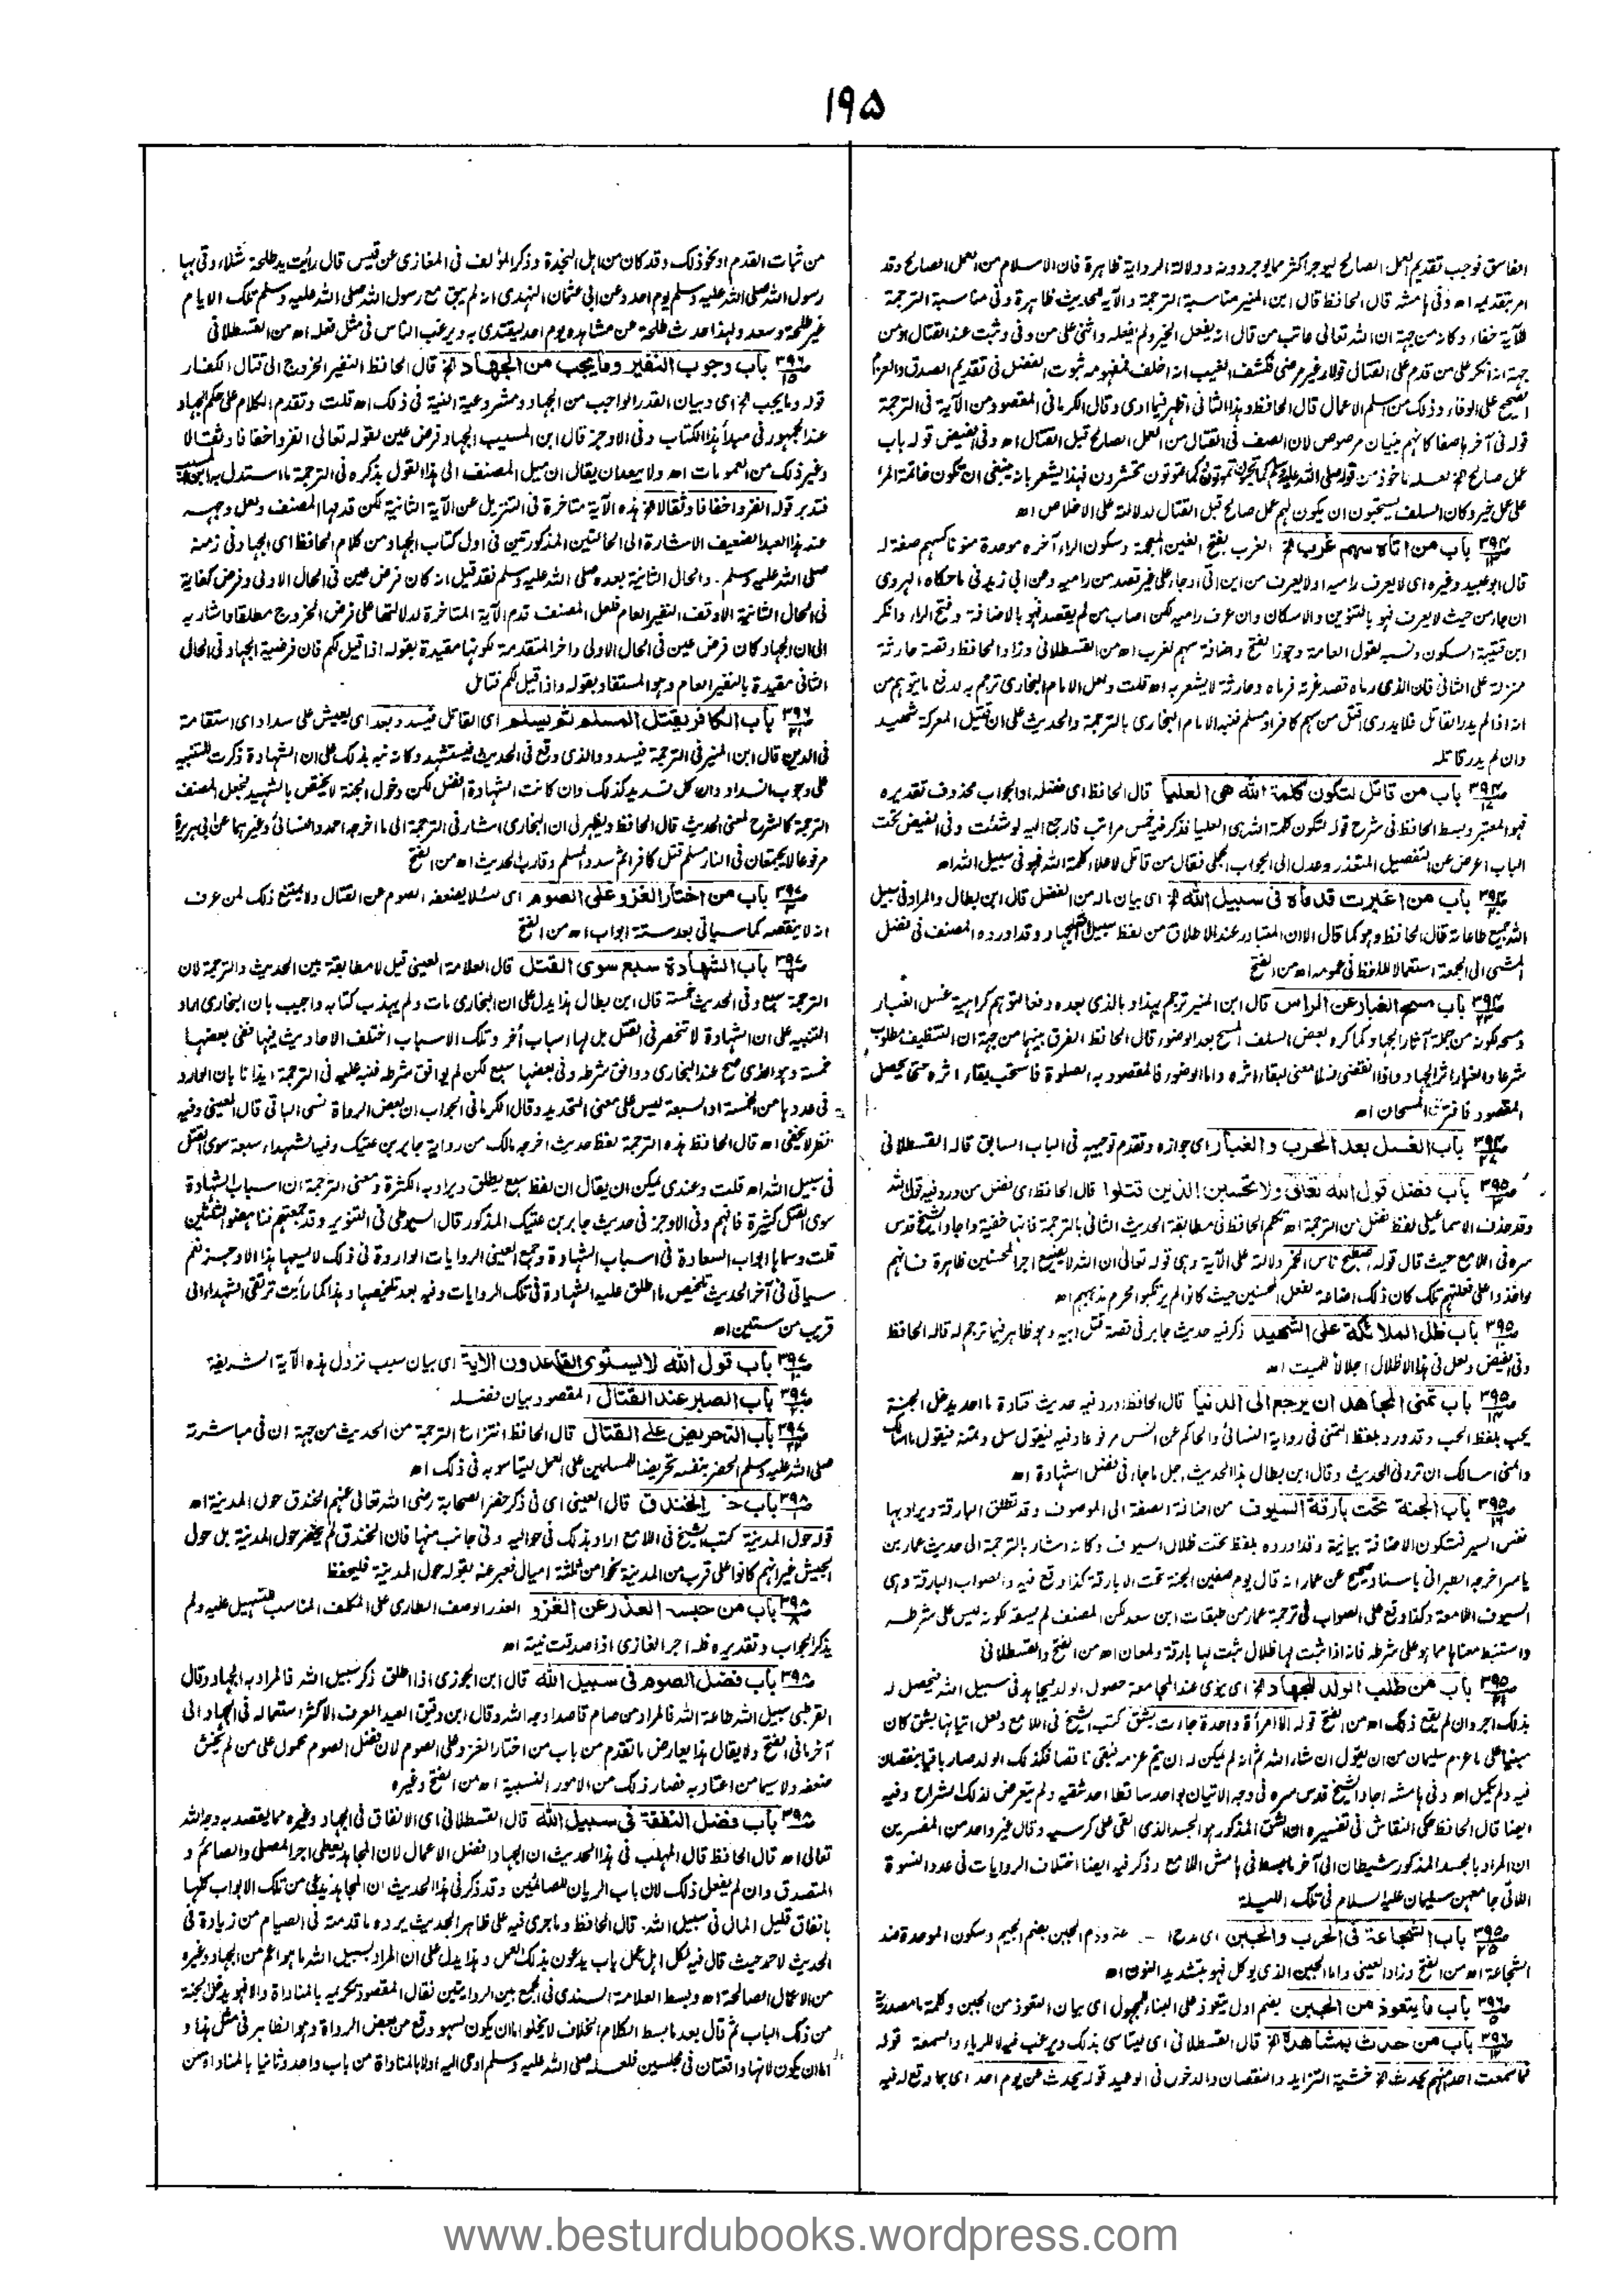 ١٩٥
الفاسق فوجب تقديم العمل الصالح ليوجر اكثر مما يوجر دونه ودلالة الرواية ظاهرة فان الاسلام من العمل الصالح وقد
امر بتقديمه اه وفى هامشه قال الحافظ قال ابن المنير مناسبة الترجمة والآية للحديث ظاهرة وفى مناسبة الترجمة
للآية خفاء وكانه من جهة ان الله تعالى عاتب من قال انه يفعل الخير ولم يفعله واثنى على من وفى وثبت عند القتال او من
جهة انه انكر على من قدم على القتال قولا غير مرضى فكشف الغيب انه اخلف فمفهومه ثبوت الفضل فى تقديم الصدق والعزم
الصحيح على الوفاء وذلك من اسلم الاعمال قال الحافظ وهذا الثانى اظهر فيما ارى وقال الكرمانى المقصود من الآية فى الترجمة
قوله فى آخرها صفا كانهم بنيان مرصوص لان الصف فى القتال من العمل الصالح قبل القتال اه وفى الفيض قوله باب
عمل صالح الخ لعله ماخوذ من قوله صلى الله عليه وسلم كما تموتون تحشرون فهذا يشعر بانه ينبغى ان تكون خاتمة المرء
على عمل خير وكان السلف يستحبون ان يكون لهم عمل صالح قبل القتال لدلالته على الاخلاص اه
باب من اتاه سهم غرب الخ الغرب بفتح الغين المعجمة وسكون الراء آخره موحدة منونا كسهم صفة له
قال ابو عبيد وغيره اى لا يعرف راميه او لا يعرف من اين اتى او جاء على غير قصد من راميه وعن ابى زيد فى ما حكاه الهروى
ان جاء من حيث لا يعرف فهو بالتنوين والاسكان وان عرف راميه لكن اصاب من لم يقصد فهو بالاضافة وفتح الراء وانكر
ابن قتيبة السكون ونسبه لقول العامة وجوز الفتح واضافة سهم لغرب اه من القسطلانى وزاد الحافظ وقصة حارثة
منزلة على الثانى فان الذى رماه قصد غرته فرماه وحارثة لا يشعر به اه قلت ولعل الامام البخارى ترجم به لدفع ما يتوهم من
انه اذا لم يدر القاتل فلا يدرى اقتل من سهم كافر او مسلم فنبه الامام البخارى بالترجمة والحديث على ان قتيل المعركة شهيد
وان لم يدر قاتله
باب من قاتل لتكون كلمة الله هى العليا قال الحافظ اى فضله او الجواب محذوف تقديره
فهو المعتبر وبسط الحافظ فى شرح قوله لتكون كلمة الله هى العليا فذكر فيه خمس مراتب فارجع اليه لو شئت وفى الفيض تحت
الباب اعرض عن التفصيل المقذر وعدل الى الجواب الجملى فقال من قاتل لاعلاء كلمة الله فهو فى سبيل الله اه
باب من اغبرت قدماه فى سبيل الله الخ اى بيان ماله من الفضل قال ابن بطال والمراد فى سبيل
الله جميع طاعاته قال الحافظ وهو كما قال الا ان المتبادر عند الاطلاق من لفظ سبيل الله الجهاد وقد اورده المصنف فى فضل
المشى الى الجمعة استعمالا للفظ فى عمومه اه من الفتح
باب مسح الغبار عن الراس قال ابن المنير ترجم بهذا وبالذى بعده دفعا لتوهم كراهية غسل الغبار
ومسحه لكونه من جملة آثار الجهاد كما كره بعض السلف المسح بعد الوضوء قال الحافظ الفرق بينهما من جهة ان التنظيف مطلوب
شرعا والغبار اثر الجهاد واذا انقضى فلا معنى لبقاء اثره واما الوضوء فالمقصود به الصلوة فاستحب بقاء اثره حتى يحصل
المقصود فافترق المسحان اه
باب الغسل بعد الحرب والغبار اى جوازه وتقدم توجيهه فى الباب السابق قاله القسطلانى
باب فضل قول الله تعالى ولا تحسبن الذين قتلوا قال الحافظ اى فضل من ورد فيه قول الله
وقد حذف الاسماعيلى لفظ فضل من الترجمة اه تكلم الحافظ فى مطابقة الحديث الثانى بالترجمة فانها خفية واجاد الشيخ قدس
سره فى اللامع حيث قال قوله اصطبح ناس الخمر دلالته على الآية وهى قوله تعالى ان الله لا يضيع اجر المحسنين ظاهرة فانهم
لو اخذوا على فعلتهم تلك كان ذلك اضاعة لفعل المحسنين حيث كانوا لم يرتكبوا محرم مذهبهم اه
باب ظل الملائكة على الشهيد ذكر فيه حديث جابر فى قصة قتل ابيه وهو ظاهر فيما ترجم له قاله الحافظ
وفى الفيض ولعل فى هذا الاظلال اجلالا للميت اه
باب تمنى المجاهد ان يرجع الى الدنيا قال الحافظ اورد فيه حديث قتادة ما احد يدخل الجنة
يحب بلفظ الحب وقد ورد بلفظ التمنى فى رواية النسائى والحاكم عن انس مرفوعا وفيه فيقول سل وتمنه فيقول ما اسألك
واتمنى اسألك ان تردنى الحديث وقال ابن بطال هذا الحديث اجل ما جاء فى فضل الشهادة اه
باب الجنة تحت بارقة السيوف من اضافة الصفة الى الموصوف وقد تطلق البارقة ويراد بها
نفس السيف فتكون الاضافة بيانية وقد اورده بلفظ تحت ظلال السيوف وكانه اشار بالترجمة الى حديث عمار بن
ياسر اخرجه الطبرانى باسناد صحيح عن عمار انه قال يوم صفين الجنة تحت الابارقة كذا وقع فيه والصواب البارقة وهى
السيوف اللامعة وكذا وقع على الصواب فى ترجمة عمار من طبقات ابن سعد لكن المصنف لم يسقه لكونه ليس على شرطه
واستنبط معناها مما هو على شرطه فانه اذا ثبت لها ظلال ثبت لها بارقة ولمعان اه من الفتح والقسطلانى
باب من طلب الولد للجهاد الخ اى ينوى عند المجامعة حصول الولد ليجاهد فى سبيل الله فيحصل له
بذلك اجر وان لم يقع ذلك اه من الفتح قوله الا امرأة واحدة جاءت بشق كتب الشيخ فى اللامع ولعل اتيانها بشق كان
مبنيا على ما عزم سليمان من ان يقول ان شاء الله ثم انه لم يكن له ان يتم عزمه فبقى ناقصا فكذلك الولد صار باقيا بنقصان
فيه ولم يكمل اه وفى هامشه اجاد الشيخ قدس سره فى وجه الاتيان بواحد ساقطا احد شقيه ولم يتعرض لذلك الشراح وفيه
ايضا قال الحافظ حكى النقاش فى تفسيره ان الشق المذكور هو الجسد الذى القى على كرسيه وقال غير واحد من المفسرين
ان المراد بالجسد المذكور شيطان الى آخر ما بسط فى هامش اللامع وذكر فيه ايضا اختلاف الروايات فى عدد النسوة
اللاتى جامعهن سليمان عليه السلام فى تلك الليلة
باب الشجاعة فى الحرب والجبن اى مدح وذم الجبن بضم الجيم وسكون الموحدة ضد
الشجاعة اه من الفتح وزاد العينى واما الجبن الذى يوكل فهو بتشديد النون اه
باب ما يتعوذ من الجبن بضم اول يتعوذ على البناء للمجهول اى بيان التعوذ من الجبن وكلمة ما مصدرية
باب من حدث بمشاهده الخ قال القسطلانى اى ليتاسى بذلك ويرغب فيه لا للرياء والسمعة قوله
فما سمعت احدا منهم يحدث الخ خشية التزايد والنقصان والدخول فى الوعيد قوله يحدث عن يوم احد اى بما وقع له فيه
من ثبات القدم او نحو ذلك وقد كان من اهل النجدة وذكر المؤلف فى المغازى عن قيس قال رأيت يد طلحة شلاء وقى بها
رسول الله صلى الله عليه وسلم يوم احد وعن ابى عثمان النهدى انه لم يبق مع رسول الله صلى الله عليه وسلم تلك الايام
غير طلحة وسعد ولهذا حدث طلحة عن مشاهده يوم احد ليقتدى به ويرغب الناس فى مثل فعله اه من القسطلانى
باب وجوب النفير وما يجب من الجهاد الخ قال الحافظ النفير الخروج الى قتال الكفار
قوله وما يجب الخ اى وبيان القدر الواجب من الجهاد ومشروعية النية فى ذلك اه قلت وتقدم الكلام على حكم الجهاد
عند الجمهور فى مبدأ هذا الكتاب وفى الاوجز قال ابن المسيب الجهاد فرض عين لقوله تعالى انفروا خفافا وثقالا
وغير ذلك من العمومات اه ولا يبعد ان يقال ان ميل المصنف الى هذا القول بذكره فى الترجمة ما استدل به ابن المسيب
فتدبر قوله انفروا خفافا وثقالا الخ هذه الآية متاخرة فى التنزيل عن الآية الثانية لكن قدمها المصنف ولعل وجهه
عند هذا العبد الضعيف الاشارة الى الحالتين المذكورتين فى اول كتاب الجهاد من كلام الحافظ اى الجهاد فى زمنه
صلى الله عليه وسلم. والحال الثانية بعده صلى الله عليه وسلم فقد قيل انه كان فرض عين فى الحال الاولى وفرض كفاية
فى الحال الثانية الا وقت النفير العام فلعل المصنف قدم الآية المتاخرة لدلالتها على فرض الخروج مطلقا واشار به
الى ان الجهاد كان فرض عين فى الحال الاولى واخر المتقدمة لكونها مقيدة بقوله اذا قيل لكم فان فرضية الجهاد فى الحال
الثانى مقيدة بالنفير العام وهو المستفاد بقوله واذا قيل لكم فتامل
باب الكافر يقتل المسلم ثم يسلم اى القاتل فيسدد بعد اى يعيش على سداد اى استقامة
فى الدين قال ابن المنير فى الترجمة فيسدد والذى وقع فى الحديث فيستشهد وكانه نبه بذلك على ان الشهادة ذكرت للتنبيه
على وجوه السداد وان كل تسديد كذلك وان كانت الشهادة افضل لكن دخول الجنة لا يختص بالشهيد فجعل المصنف
الترجمة كالشرح لمعنى الحديث قال الحافظ ويظهر لى ان البخارى اشار فى الترجمة الى ما اخرجه احمد والنسائى وغيرهما عن ابى هريرة
مرفوعا لا يجتمعان فى النار مسلم قتل كافرا ثم سدد المسلم وقارب الحديث اه من الفتح
باب من اختار الغزو على الصوم اى لئلا يضعفه الصوم عن القتال ولا يمتنع ذلك لمن عرف
انه لا ينقصه كما سياتى بعد ستة ابواب اه من الفتح
باب الشهادة سبع سوى القتل قال العلامة العينى قيل لا مطابقة بين الحديث والترجمة لان
الترجمة سبع وفى الحديث خمسة قال ابن بطال هذا يدل على ان البخارى مات ولم يهذب كتابه واجيب بان البخارى اراد
التنبيه على ان الشهادة لا تنحصر فى القتل بل لها اسباب أخر وتلك الاسباب اختلف الاحاديث فيها ففى بعضها
خمسة وهو الذى صح عند البخارى ووافق شرطه وفى بعضها سبع لكن لم يوافق شرطه فنبه عليه فى الترجمة ايذانا بان الوارد
فى عددها من الخمسة او السبعة ليس على معنى التحديد وقال الكرمانى الجواب ان بعض الرواة نسى الباقى قال العينى وفيه
نظر لا يخفى اه قال الحافظ هذه الترجمة لفظ حديث اخرجه مالك من رواية جابر بن عتيك وفيه الشهداء سبعة سوى القتل
فى سبيل الله اه قلت وعندى يمكن ان يقال ان لفظ سبع يطلق ويراد به الكثرة ومعنى الترجمة ان اسباب الشهادة
سوى القتل كثيرة فافهم وفى الاوجز فى حديث جابر بن عتيك المذكور قال السيوطى فى التنوير وقد جمعتهم فناهفوا الثلثين
قلت وسماها ابواب السعادة فى اسباب الشهادة وجمع العينى الروايات الواردة فى ذلك لا يسيعها هذا الاوجز نعم
سياتى فى آخر الحديث تلخيص ما اطلق عليه الشهادة فى تلك الروايات وفيه بعد تلخيصها وهذا كما رأيت ترتقى الشهداء الى
قريب من ستين اه
باب قول الله لا يستوى القاعدون الاية اى بيان سبب نزول هذه الآية الشريفة
باب الصبر عند القتال المقصود بيان فضله
باب التحريض على القتال قال الحافظ انتزاع الترجمة من الحديث من جهة ان فى مباشرته
صلى الله عليه وسلم الحفر بنفسه تحريضا للمسلمين على العمل ليتاسوا به فى ذلك اه
باب حفر الخندق قال العينى اى فى ذكر حفر الصحابة رضى الله تعالى عنهم الخندق حول المدينة اه
قوله حول المدينة كتب الشيخ فى اللامع اراد بذلك فى حواليه وفى جانب منها فان الخندق لم يحفر حول المدينة بل حول
الجيش غير انهم كانوا على قرب من المدينة نحوا من ثلثة اميال فعبر عنه بقوله حول المدينة فليحفظ
باب من حبسه العذر عن الغزو العذر الوصف الطارى على المكلف المناسب للتسهيل عليه ولم
يذكر الجواب وتقديره فله اجر الغازى اذا صدقت نيته اه
باب فضل الصوم فى سبيل الله قال ابن الجوزى اذا اطلق ذكر سبيل الله فالمراد به الجهاد وقال
القرطبى سبيل الله طاعة الله فالمراد من صام قاصدا وجه الله وقال ابن دقيق العيد العرف الاكثر استعماله فى الجهاد الى
آخر ما فى الفتح ولا يقال هذا يعارض ما تقدم من باب من اختار الغزو على الصوم لان فضل الصوم محمول على من لم يخش
ضعفه ولا سيما من اعتاد به فصار ذلك من الامور النسبية اه من الفتح وغيره
باب فضل النفقة فى سبيل الله قال القسطلانى اى الانفاق فى الجهاد وغيره مما يقصد به وجه الله
تعالى اه قال الحافظ قال المهلب فى هذا الحديث ان الجهاد افضل الاعمال لان المجاهد يعطى اجر المصلى والصائم و
المتصدق وان لم يفعل ذلك لان باب الريان للصائمين وقد ذكر فى هذا الحديث ان المجاهد يدعى من تلك الابواب كلها
بانفاق قليل المال فى سبيل الله. قال الحافظ وما جرى فيه على ظاهر الحديث يرده ما قدمته فى الصيام من زيادة فى
الحديث لاحمد حيث قال فيه لكل اهل عمل باب يدعون بذلك العمل وهذا يدل على ان المراد بسبيل الله ما هو اعم من الجهاد وغيره
من الاعمال الصالحة اه وبسط العلامة السندى فى الجمع بين الروايتين فقال المقصود تكريمه بالمناداة والا فهو يدخل الجنة
من ذلك الباب ثم قال بعد ما بسط الكلام الخلاف لا يخلوا اما ان يكون لسهو وقع من بعض الرواة وهو الظاهر فى مثل هذا و
اما ان يكون لانهما واقعتان فى مجلسين فلعله صلى الله عليه وسلم اوحى اليه اولا بالمناداة من باب واحد وثانيا بالمناداة من
www.besturdubooks.wordpress.com